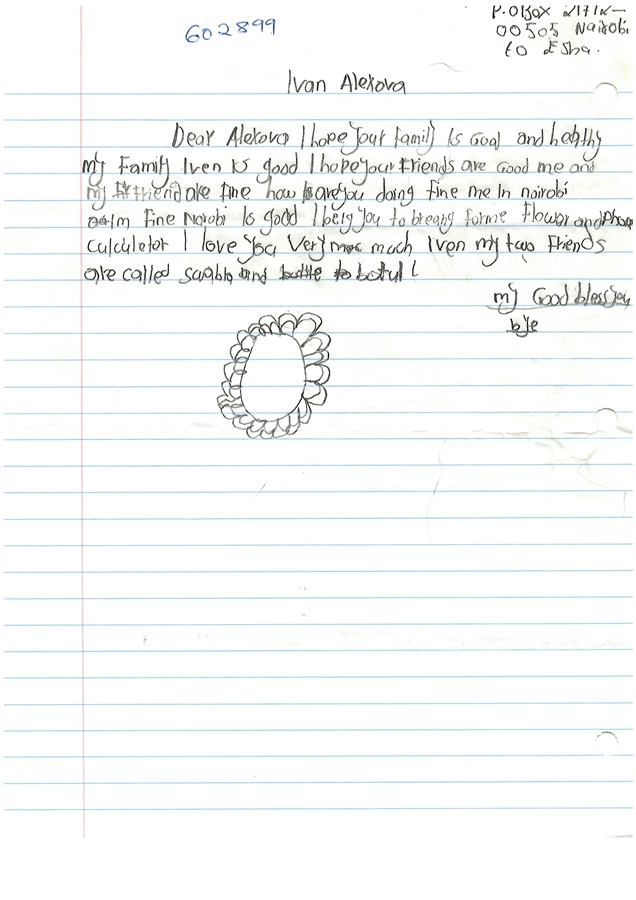 602899
P.O Box 21712
00505 Nairobi
to Esha.
Ivan Alexova
Dear Alexova I hope your family Is Goal and healthy
my Family Iven Is good I hope your friends are Good me and
my friend are fine how are you doing fine me In nairobi
Im fine Nairobi Is good I you to for me Flower and
calculator I love you Very much Iven my two Friends
are called and
my Good bless you
bye